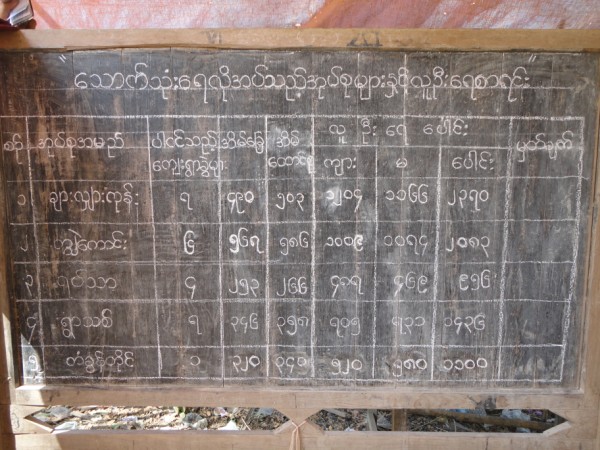 "သောက်သုံးရေလိုအပ်သည့်အုပ်စုများနှင့်လူဦးရေစာရင်း"
လူ ဦး ရေ ပေါင်း
စဉ် အုပ်စုအမည် ပါဝင်သည့် အိမ်ခြေ အိမ် မှတ်ချက်
ကျေးရွာခွဲများ ထောင်စု ကျား မ ပေါင်း
၁ ချားလှျားကုန်း ၇ ၄၉၀ ၅၀၃ ၁၂၀၄ ၁၁၆၆ ၂၃၇၀
၂ ကျွဲကောင်း ၆ ၅၆၇ ၅၈၆ ၁၀၀၉ ၁၀၇၄ ၂၀၈၃
၃ ၄ ၂၅၃ ၂၆၆ ၄၈၇ ၄၆၉ ၉၅၆
၄ ရွာသစ် ၇ ၃၄၆ ၃၅၈ ၇၀၅ ၇၃၁ ၁၄၃၆
၅ တံခွန်တိုင် ၁ ၃၂၀ ၃၄၀ ၅၂၀ ၅၈၀ ၁၁၀၀